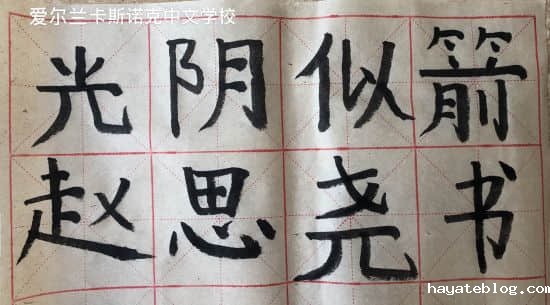 爱尔兰卡斯诺克中文学校
光阴似箭
赵思尧书
hayateblog.com